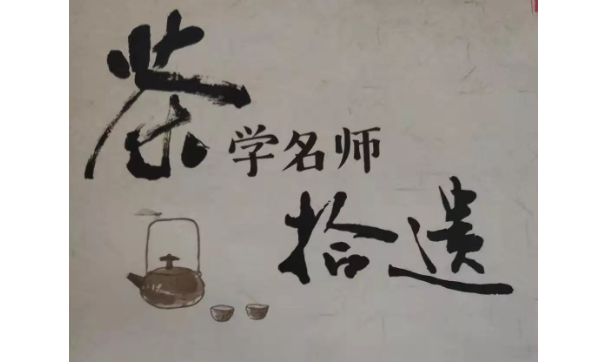 茶学名师
拾遗